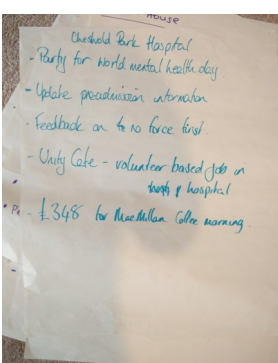 House
Cheshold Park Hospital
- Party for World mental health day.
- Update preadmission information
- Feedback on to no force first.
- Unity Cafe - volunteer based job in
hospital
- £348 for MacMillan Coffee morning.